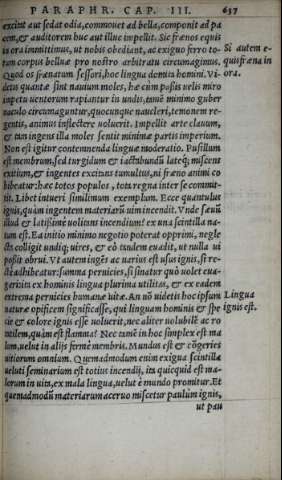 PARAPHR. CAP. III. 637
excint aut sedat odia, commouet ad bella, componit ad pa
cem, & auditorem huc aut illuc impellit. Sic frænos equis
in ora immittimus, ut nobis obediant, ac exiguo ferro to-
tum corpus belluæ pro nostro arbitratu circumagimus.
Quod os frænatum sessori, hoc lingua demitis homini. Vi-
detis quantæ sint nauium moles, hæ cùm passis uelis miro
impetu uentorum rapiantur in undis, tamē minimo guber
naculo circumaguntur, quocunque naucleri, temonem re-
gentis, animus inflectere uoluerit. Impellit arte clauum,
& tam ingens illa moles sentit minimæ partis imperium.
Non est igitur contemnenda linguæ moderatio. Pusillum
est membrum, sed turgidum & iactabundū latéq; miscens
exitium, & ingentes excitans tumultus, ni fræno animi co
hibeatur: hæc totos populos, tota regna inter se commit-
tit. Libet intueri simillimum exemplum. Ecce quantulus
ignis, quàm ingentem materiarū uim incendit. Vnde sæuū
illud & latissimè uolitans incendium? ex una scintilla na-
tum est. Ea initio minimo negotio poterat opprimi, negle
cta colligit undiq; uires, & eò tandem euadit, ut nulla ui
possit obrui. Vt autem ingēs ac uarius est usus ignis, si re-
ctè adhibeatur: summa pernicies, si sinatur quò uolet eua-
gari: ita ex hominis lingua plurima utilitas, & ex eadem
extrema pernicies humanæ uitæ. An nō uidetis hoc ipsum
naturæ opificem significasse, qui linguam hominis & spe
cie & colore ignis esse uoluerit, nec aliter uolubilē ac ro
tatilem, quàm est flamma? Nec tamē in hoc simplex est ma
lum, uelut in alijs fermè membris. Mundus est & cōgeries
uitiorum omnium. Quemadmodum enim exigua scintilla
ueluti seminarium est totius incendij, ita quicquid est ma-
lorum in uita, ex mala lingua, uelut è mundo promitur. Et
quemadmodū materiarum aceruo miscetur paulùm ignis,
ut pau
Si autem e-
quis fræna in
ora.
Lingua
ignis est.